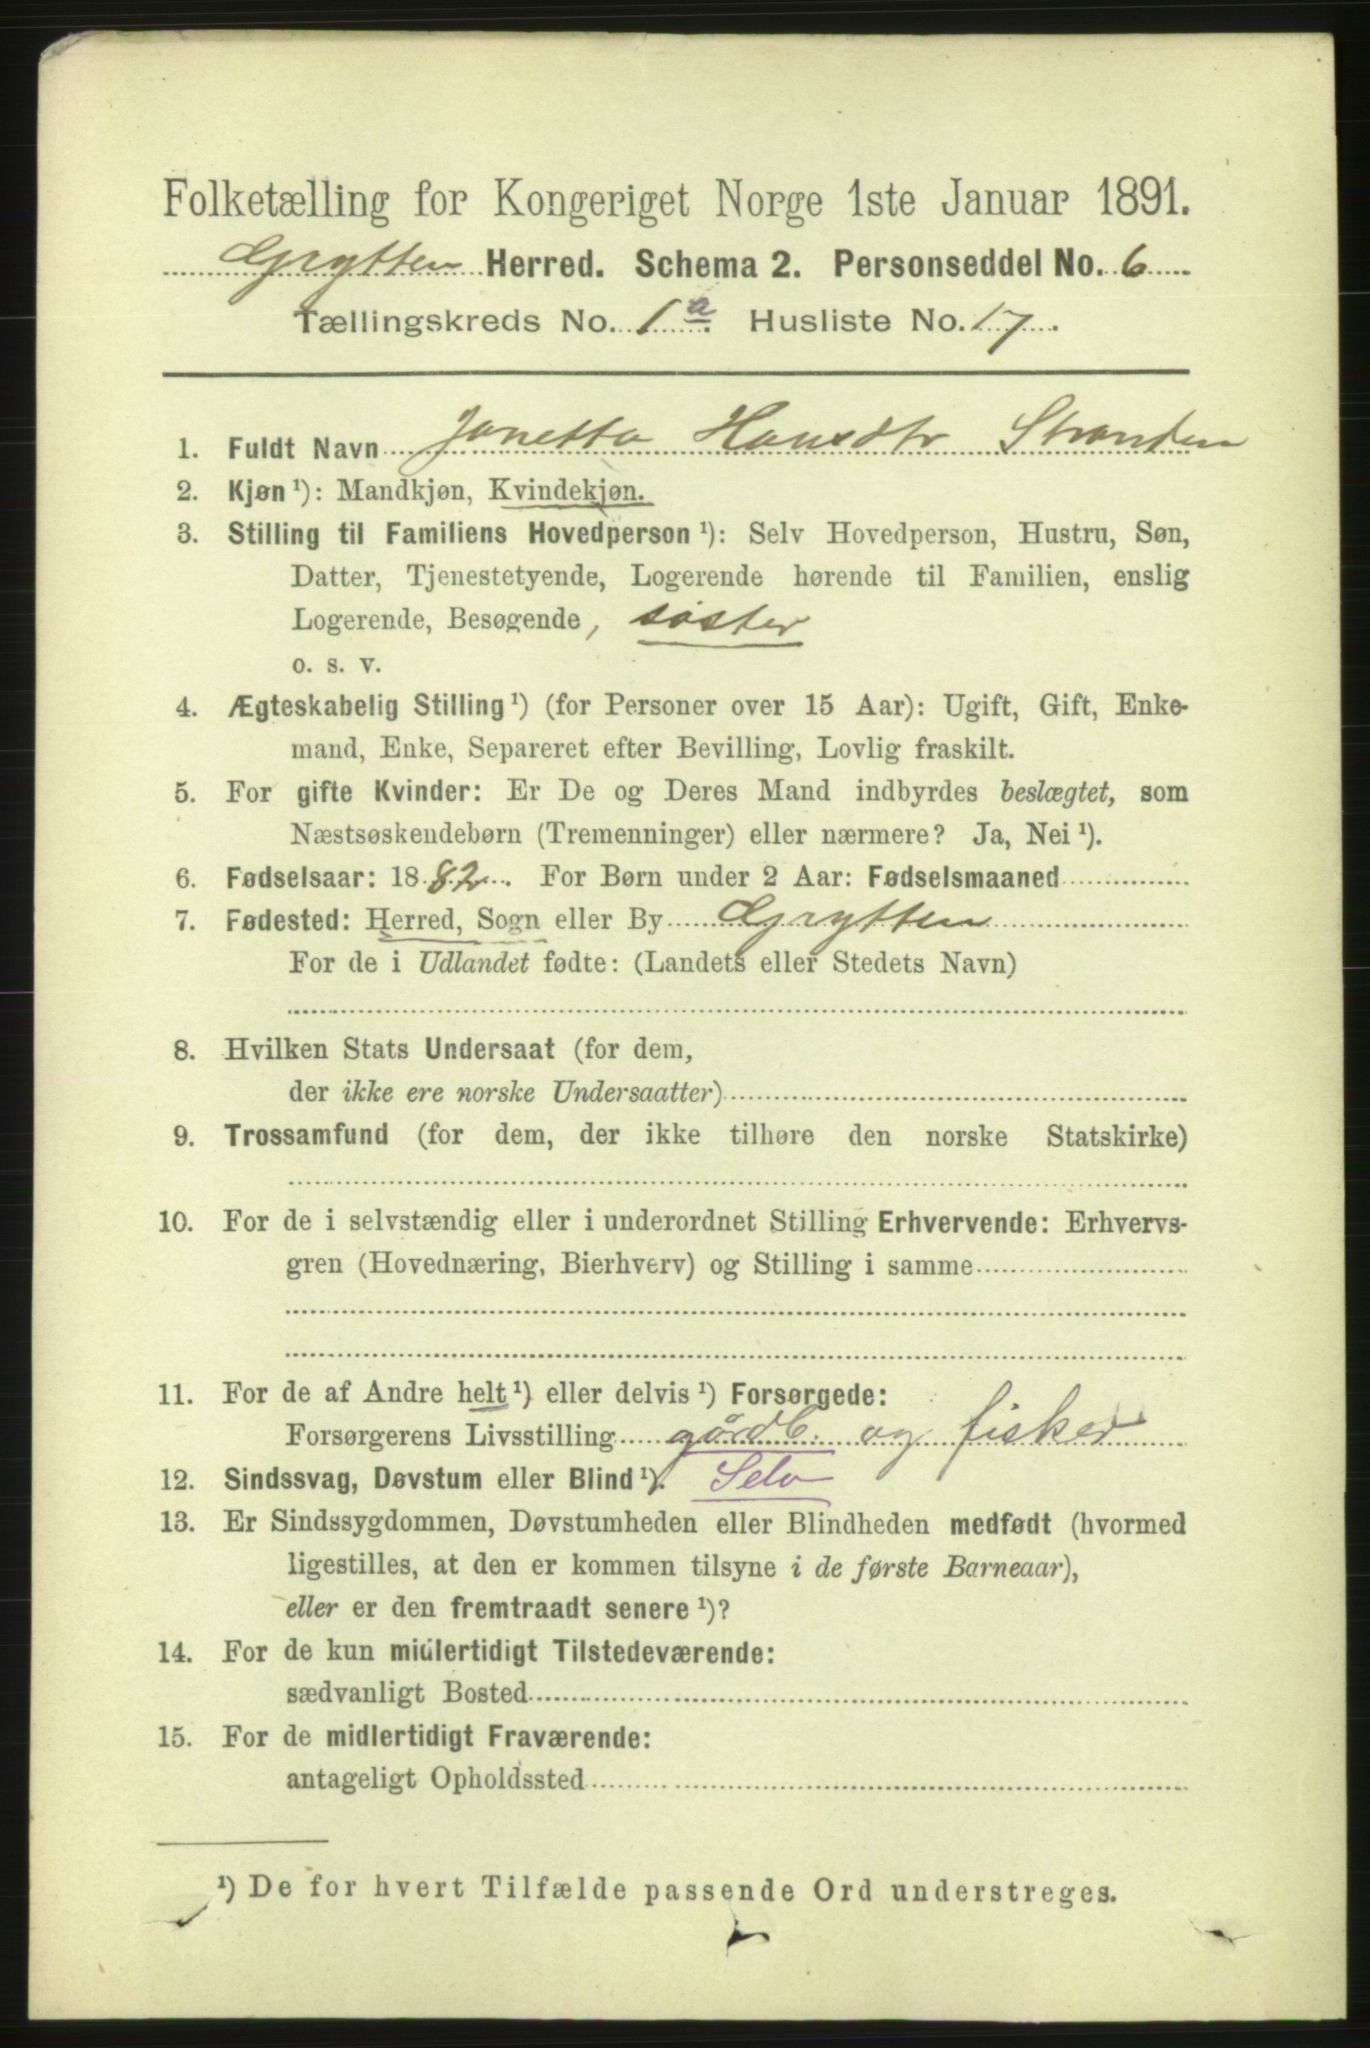 Folketælling for Kongeriget Norge 1ste Januar 1891.
Grytten Herred. Schema 2. Personseddel No. 6
Tællingskreds No. 1a. Husliste No. 17.
1. Fuldt Navn Janetta Hansdtr Stranden
2. Kjøn ¹): Mandkjøn, Kvindekjøn.
3. Stilling til Familiens Hovedperson ¹): Selv Hovedperson, Hustru, Søn,
Datter, Tjenestetyende, Logerende hørende til Familien, enslig
Logerende, Besøgende, søster
o. s. v.
4. Ægteskabelig Stilling ¹) (for Personer over 15 Aar): Ugift, Gift, Enke-
mand, Enke, Separeret efter Bevilling, Lovlig fraskilt.
5. For gifte Kvinder: Er De og Deres Mand indbyrdes beslægtet, som
Næstsøskendebørn (Tremenninger) eller nærmere? Ja, Nei ¹).
6. Fødselsaar: 1882. For Børn under 2 Aar: Fødselsmaaned
7. Fødested: Herred, Sogn eller By Grytten
For de i Udlandet fødte: (Landets eller Stedets Navn)
8. Hvilken Stats Undersaat (for dem,
der ikke ere norske Undersaatter)
9. Trossamfund (for dem, der ikke tilhøre den norske Statskirke)
10. For de i selvstændig eller i underordnet Stilling Erhvervende: Erhvervs-
gren (Hovednæring, Bierhverv) og Stilling i samme
11. For de af Andre helt ¹) eller delvis ¹) Forsørgede:
Forsørgerens Livsstilling gårdb. og fisker
12. Sindssvag, Døvstum eller Blind ¹). Selv
13. Er Sindssygdommen, Døvstumheden eller Blindheden medfødt (hvormed
ligestilles, at den er kommen tilsyne i de første Barneaar),
eller er den fremtraadt senere ¹)?
14. For de kun midlertidigt Tilstedeværende:
sædvanligt Bosted
15. For de midlertidigt Fraværende:
antageligt Opholdssted
¹) De for hvert Tilfælde passende Ord understreges.